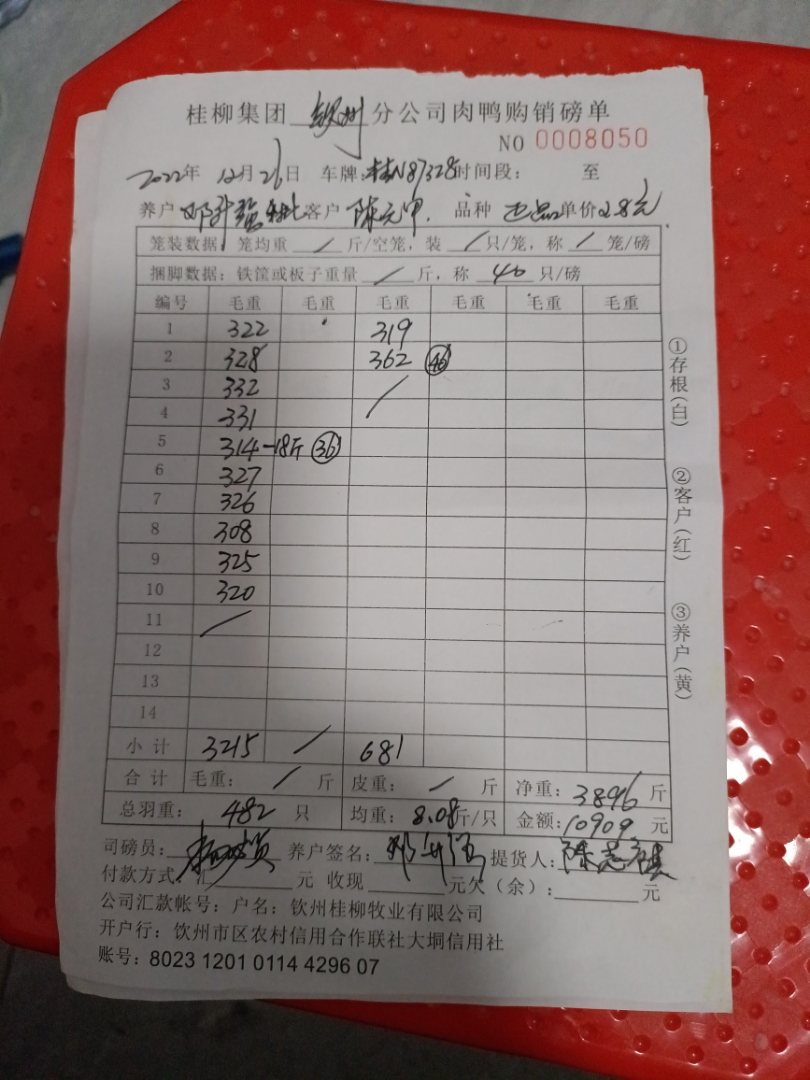 桂柳集团 钦州 分公司肉鸭购销磅单
NO 0008050
2022年 12月26日 车牌:桂N87328时间段: 至
养户 邓升 客户 陈元甲 品种 正品 单价 2.8元
笼装数据: 笼均重 / 斤/空笼, 装 / 只/笼, 称 / 笼/磅
捆脚数据: 铁筐或板子重量 / 斤, 称 40 只/磅
编号 毛重 毛重 毛重 毛重 毛重 毛重
1 322 319
2 328 362 46
3 332 /
4 331
5 314-18斤 36
6 327
7 326
8 308
9 325
10 320
11 /
12
13
14
小计 3215 / 681
合计 毛重: / 斤 皮重: / 斤 净重: 3896 斤
总羽重: 482 只 均重: 8.08斤/只 金额: 10909 元
司磅员: 养户签名: 邓升 提货人: 陈
付款方式: 汇 元 收现 元欠(余): 元
公司汇款帐号: 户名: 钦州桂柳牧业有限公司
开户行: 钦州市区农村信用合作联社大垌信用社
账号: 8023 1201 0114 4296 07
①存根(白)
②客户(红)
③养户(黄)